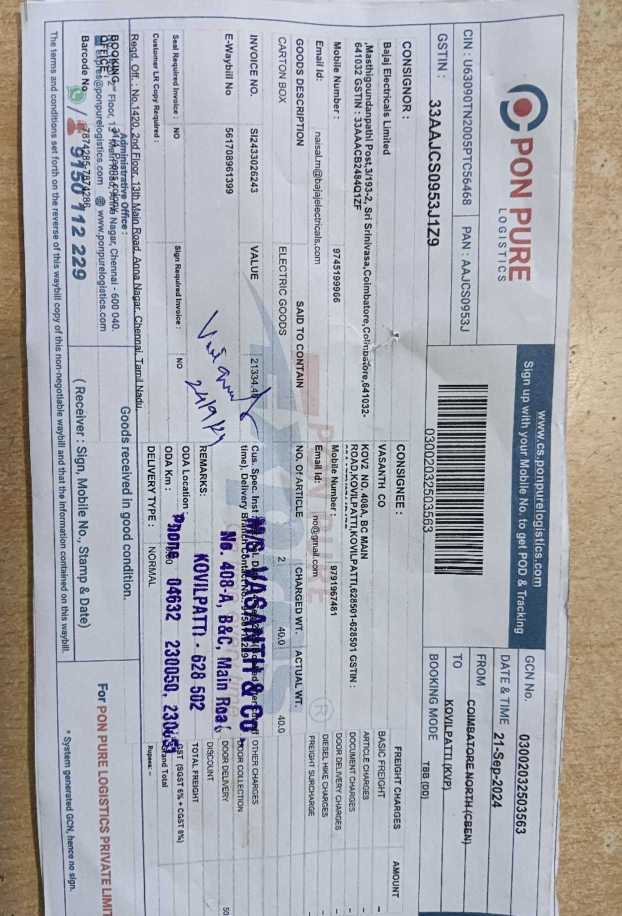 PON PURE
LOGISTICS
www.cs.ponpurelogistics.com
Sign up with your Mobile No. to get POD & Tracking
CIN : U63090TN2005PTC56468 PAN : AAJCS0953J
GSTIN : 33AAJCS0953J1Z9
03002032503563
GCN No. 03002032503563
DATE & TIME 21-Sep-2024
FROM COIMBATORE NORTH (CBEN)
TO KOVILPATTI (KVP)
BOOKING MODE TBB (DD)
CONSIGNOR :
Bajaj Electricals Limited
,Masthigoundanpathi Post,3/193-2, Sri Srinivasa,Coimbatore,Coimbatore,641032-
641032 GSTIN : 33AAACB2484Q1ZF
Mobile Number : 9745199906
Email Id: naisal.m@bajajelectricals.com
CONSIGNEE :
VASANTH CO
KOV2 NO.408A, BC MAIN
ROAD,KOVILPATTI,KOVILPATTI,628501-628501 GSTIN :
Mobile Number : 9791967481
Email Id: no@gmail.com
FREIGHT CHARGES AMOUNT
BASIC FREIGHT -
ARTICLE CHARGES -
DOCUMENT CHARGES -
DOOR DELIVERY CHARGES -
DIESEL HIKE CHARGES
FREIGHT SURCHARGE
OTHER CHARGES
DOOR COLLECTION
DOOR DELIVERY 50
DISCOUNT
TOTAL FREIGHT
GST (SGST 6% + CGST 6%)
Grand Total
Rupees: --
GOODS DESCRIPTION SAID TO CONTAIN NO. OF ARTICLE CHARGED WT. ACTUAL WT.
CARTON BOX ELECTRIC GOODS 2 40.0 40.0
R
INVOICE NO. SI2433026243 VALUE 21334.4
E-Waybill No 561708961399
Cus. Spec. Inst
time), Delivery Branch
Seal Required Invoice : NO Sign Required Invoice : NO
Customer LR Copy Required :
24/9/24
REMARKS:
ODA Location :
ODA Km :
DELIVERY TYPE : NORMAL
M/s. VASANTH & CO
No. 408-A, B&C, Main Road
KOVILPATTI - 628 502
Phone 04632 230050,
Regd. Off. : No.1420, 2nd Floor, 13th Main Road, Anna Nagar, Chennai, Tamil Nadu
Administrative Office :
Nagar, Chennai - 600 040.
@ponpurelogistics.com www.ponpurelogistics.com
BOOKING
OFFICE
Barcode No
9150 112 229
Goods received in good condition.
( Receiver : Sign, Mobile No., Stamp & Date)
For PON PURE LOGISTICS PRIVATE LIMIT
* System generated GCN, hence no sign.
The terms and conditions set forth on the reverse of this waybill copy of this non-negotiable waybill and that the information contained on this waybill.